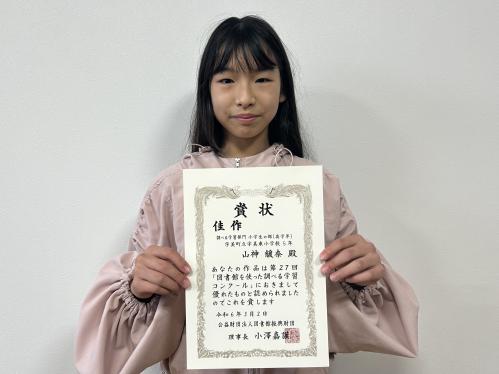 賞状
佳作
調べる学習部門 小学生の部(高学年)
宇美町立宇美東小学校 5年
山神 颯奈 殿
あなたの作品は第27回
「図書館を使った調べる学習
コンクール」におきまして
優れたものと認められました
のでこれを賞します
令和6年3月2日
公益財団法人図書館振興財団
理事長 小澤嘉謹